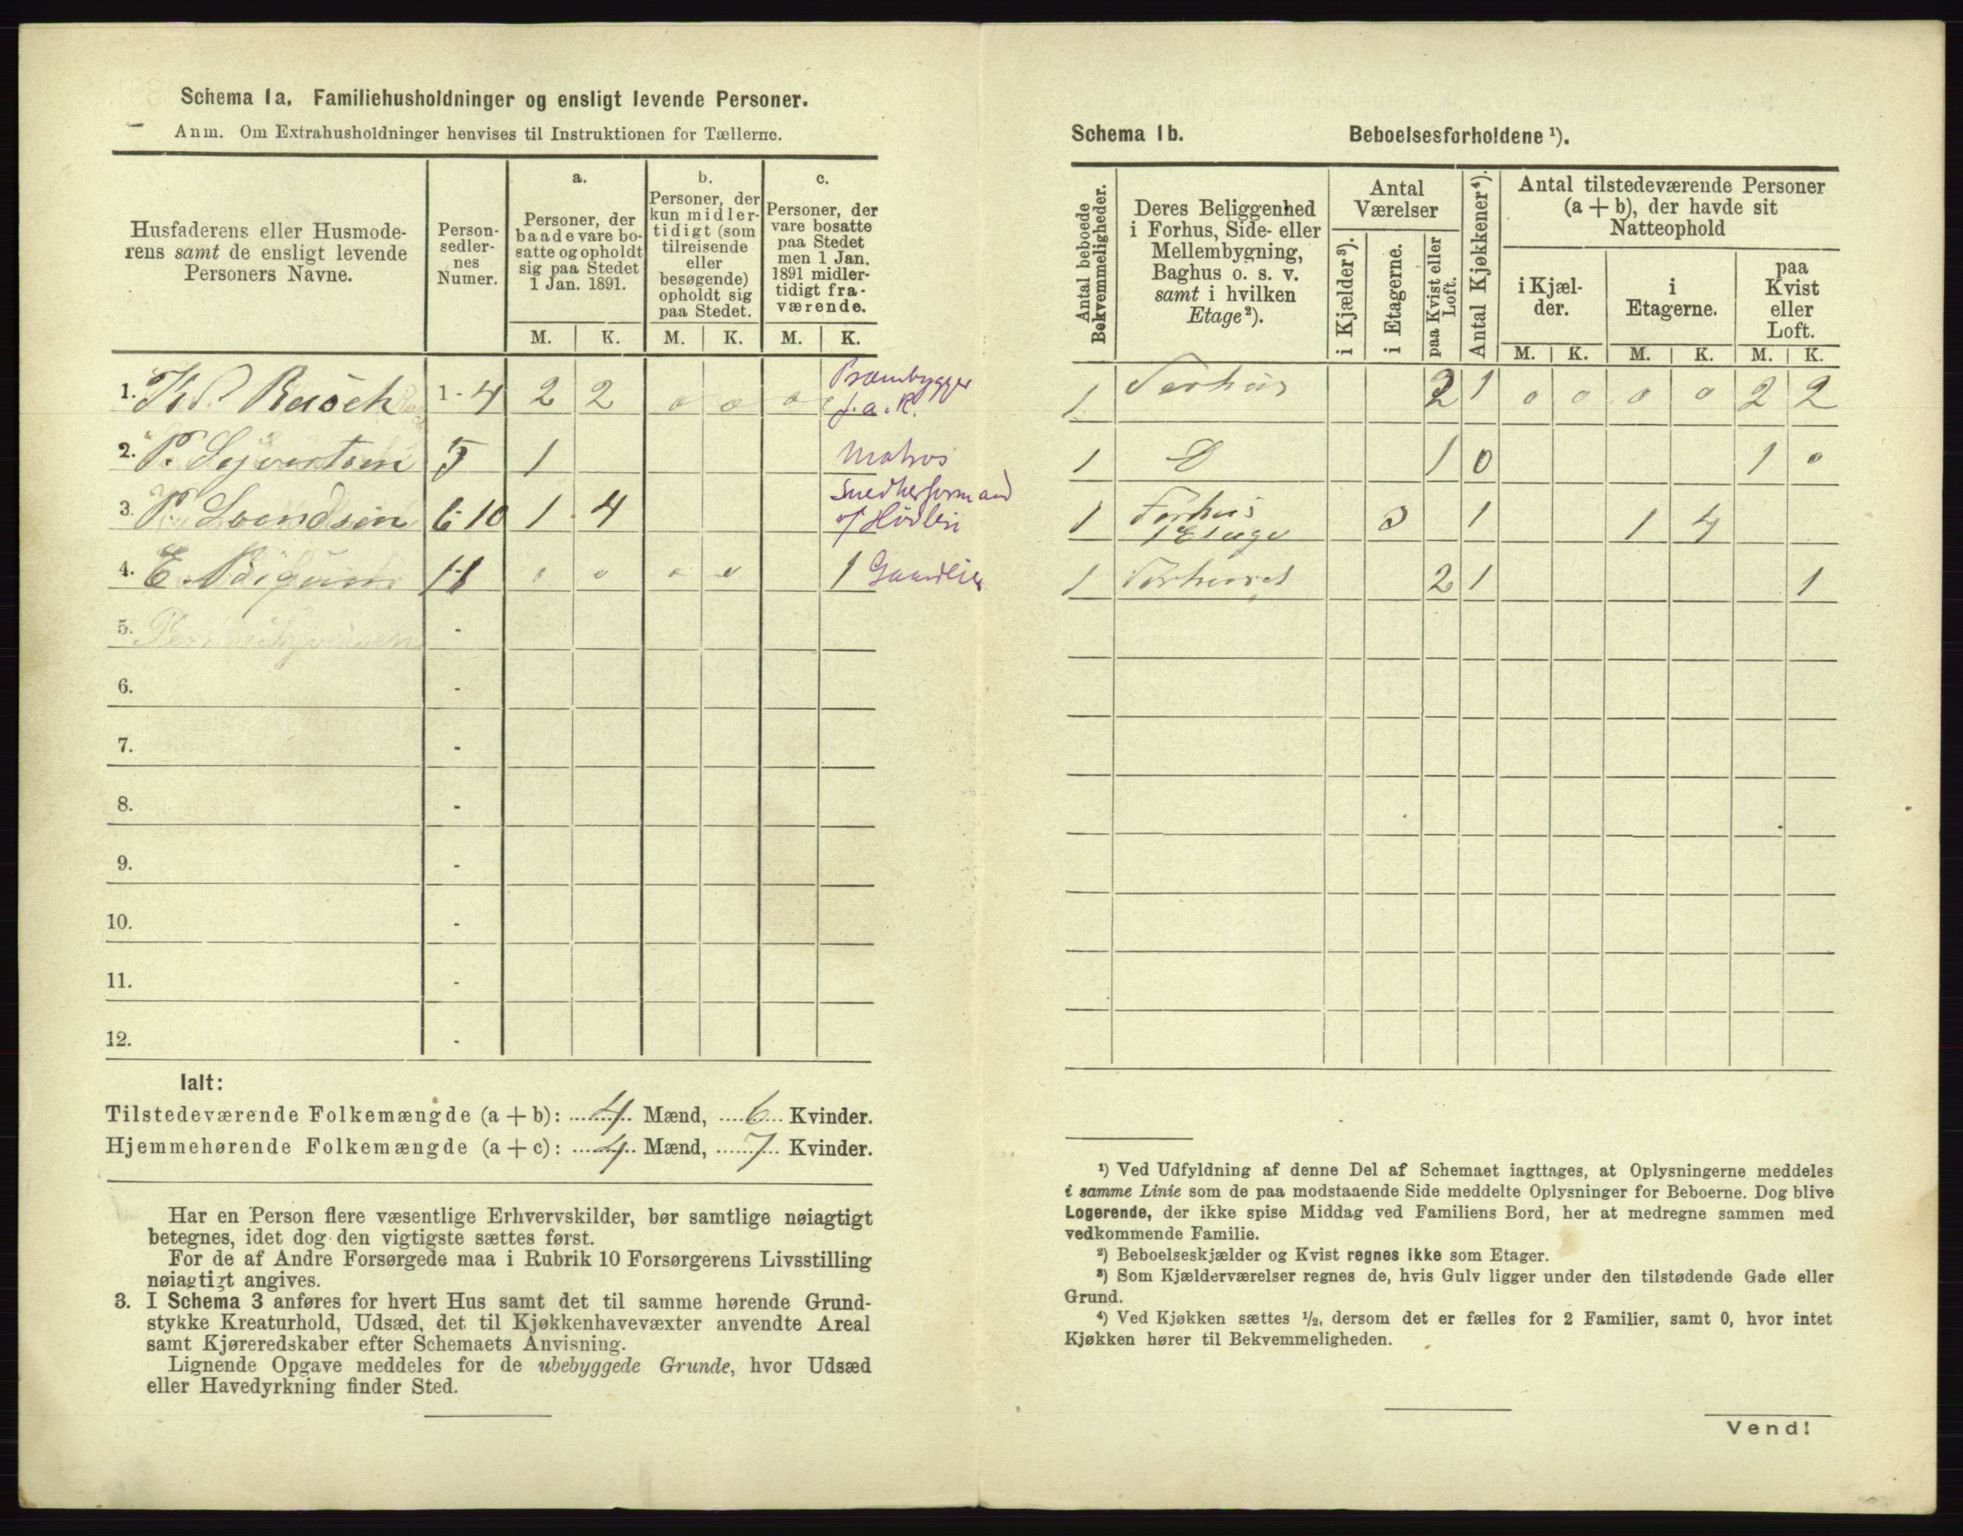 Schema 1a. Familiehusholdninger og ensligt levende Personer.
Anm. Om Extrahusholdninger henvises til Instruktionen for Tællerne.
Husfaderens eller Husmode-
rens samt de ensligt levende
Personers Navne.
Person-
sedler-
nes
Numer.
a.
Personer, der
baade vare bo-
satte og opholdt
sig paa Stedet
1 Jan. 1891.
b.
Personer, der
kun midler-
tidigt (som
tilreisende
eller
besøgende)
opholdt sig
paa Stedet.
c.
Personer, der
vare bosatte
paa Stedet
men 1 Jan.
1891 midler-
tidigt fra-
værende.
M. K. M. K. M. K.
1. Rasch 1-4 2 2 0 0 0 Prambygger
f.a.R.
2. P. Syvertsen 5 1 Matros
3. P. 6-10 1 4 Snedkerformand
4. E. 11 0 0 0 0 1
5. -
6. -
7. -
8. -
9. -
10. -
11. -
12. -
Ialt:
Tilstedeværende Folkemængde (a + b): 4 Mænd, 6 Kvinder.
Hjemmehørende Folkemængde (a + c): 4 Mænd, 7 Kvinder.
Har en Person flere væsentlige Erhvervskilder, bør samtlige nøiagtigt
betegnes, idet dog den vigtigste sættes først.
For de af Andre Forsørgede maa i Rubrik 10 Forsørgerens Livsstilling
nøiagtigt angives.
3. I Schema 3 anføres for hvert Hus samt det til samme hørende Grund-
stykke Kreaturhold, Udsæd, det til Kjøkkenhavevæxter anvendte Areal
samt Kjøreredskaber efter Schemaets Anvisning.
Lignende Opgave meddeles for de ubebyggede Grunde, hvor Udsæd
eller Havedyrkning finder Sted.
Schema 1b. Beboelsesforholdene ¹).
Antal beboede
Bekvemmeligheder.
Deres Beliggenhed
i Forhus, Side- eller
Mellembygning,
Baghus o. s. v.
samt i hvilken
Etage²).
Antal
Værelser
i Kjælder³).
i Etagerne.
paa Kvist eller
Loft.
Antal Kjøkkener⁴).
Antal tilstedeværende Personer
(a + b), der havde sit
Natteophold
i Kjæl-
der.
i
Etagerne.
paa
Kvist
eller
Loft.
M. K. M. K. M. K.
1 Forhus 2 1 0 0 0 0 2 2
1 D 1 0 1 0
1 Forhus
1 Etage 3 1 1 4
1 Forhuset 2 1 1
¹) Ved Udfyldning af denne Del af Schemaet iagttages, at Oplysningerne meddeles
i samme Linie som de paa modstaaende Side meddelte Oplysninger for Beboerne. Dog blive
Logerende, der ikke spise Middag ved Familiens Bord, her at medregne sammen med
vedkommende Familie.
²) Beboelseskjælder og Kvist regnes ikke som Etager.
³) Som Kjælderværelser regnes de, hvis Gulv ligger under den tilstødende Gade eller
Grund.
⁴) Ved Kjøkken sættes ½, dersom det er fælles for 2 Familier, samt 0, hvor intet
Kjøkken hører til Bekvemmeligheden.
Vend!